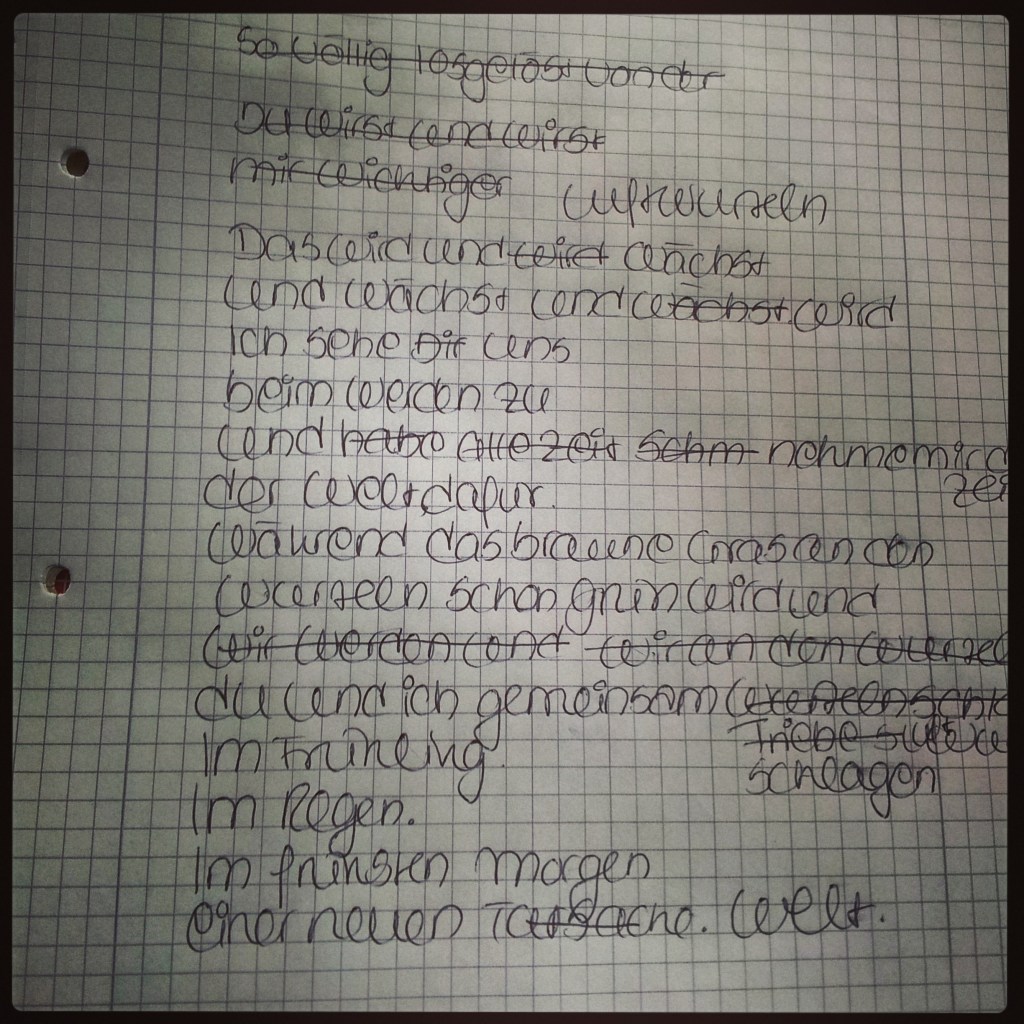 So völlig losgelöst von der
Du wirst und wirst
mir wichtiger Luftwurzeln
Das wird und wird wächst
und wächst und wächst wird
Ich sehe dir uns
beim werden zu
und habe alle zeit nehme mir
zei
der Welt dafür.
wärend das braune Gras an den
wurzeln schon grün wird und
wir werden und wir an den wurzel
du und ich gemeinsam
Triebe
Im Frühling. schlagen
Im Regen.
Im frühsten morgen
einer neuen Tatsache. Welt.